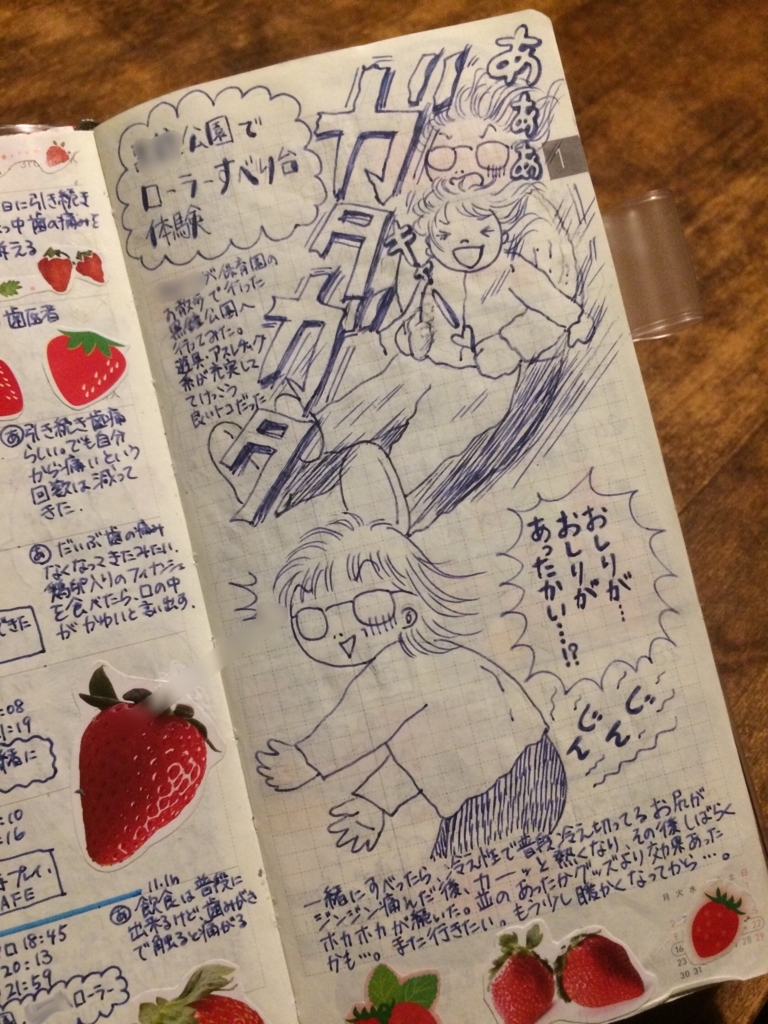 日に引き続き
っ中歯の痛みを
訴える
歯医者
あ 引き続き歯痛
らしい。でも自分
から痛いという
回数は減って
きた。
あ だいぶ歯の痛み
なくなってきたみたい。
鶏卵入りのフィナンシェ
を食べたら、口の中
がかゆいと言い出す。
できた
:08
1:19
:10
:16
プレイ.
AFE
11.1h
あ 飲食は普段に
出来るけど、歯みがき
で触ると痛がる
18:45
20:13
21:59
ローラー
公園で
ローラーすべり台
体験
保育園の
お散歩で行った
公園へ
行ってみた。
遊具、アスレチック
系が充実して
てけっこう
良いトコだった
ガタガタ
あああ
キャー
1
おしりが…
おしりが
あったかい…!?
じん
じん
一緒にすべったら、冷え性で普段冷え切ってるお尻が
ジンジン痛んだ後、カーッと熱くなり、その後しばらく
ホカホカが続いた。並のあったかグッズより効果あった
かも…。また行きたい。もう少し暖かくなってから…。
月 火 水
土 日
16
23
30 31